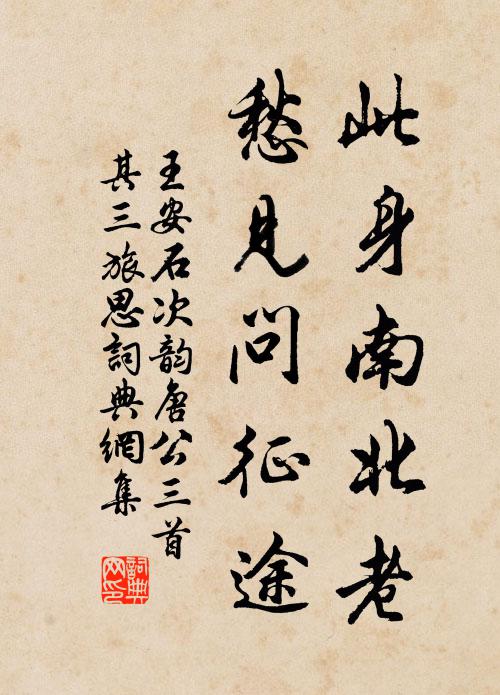 此身南北老
愁見問征途
王安石次韵唐公三首
其三旅思詞典網集
詞典网印